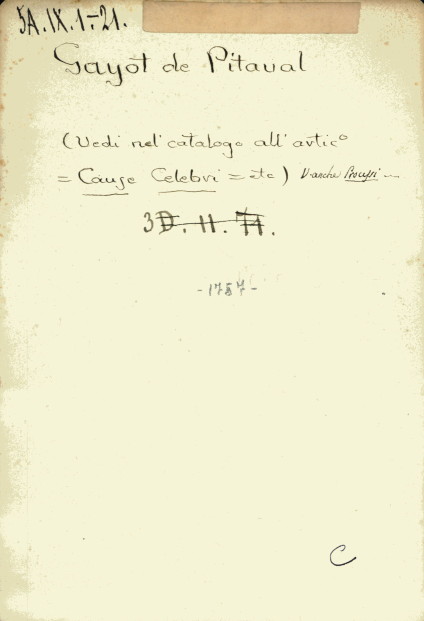 5A.IX.1-21.
Gayot de Pitaval
(Vedi nel' catalogo all' artico
= Cause Celebri = etc) V. anche Processi
3D. II. 71.
-1757-
C